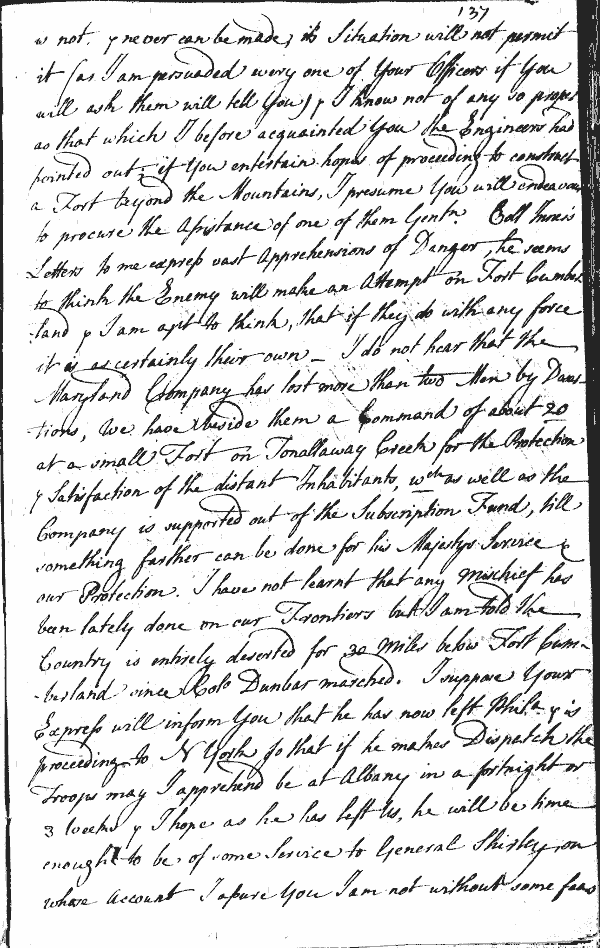 137
w not, & never can be made, its Situation will not permit
it (as I am persuaded every one of Your Officers if You
will ask them will tell you) & I know not of any so proper
as that which I before acquainted You the Engineers had
pointed out; if You entertain hopes of proceeding to construct
a Fort beyond the Mountains, I presume You will endeavour
to procure the Assistance of one of them Gentn. Coll Innes's
Letters to me express vast Apprehensions of Danger, he seems
to think the Enemy will make an Attempt on Fort Cumber
land & I am apt to think, that if they do with any force
it is as certainly their own — I do not hear that the
Maryland Company has lost more than two Men by Deser-
tions, We have beside them a Command of about 20
at a small Fort on Tonallaway Creek for the Protection
& Satisfaction of the distant Inhabitants, wch as well as the
Company is supported out of the Subscription Fund, till
something farther can be done for his Majestys Service &
our Protection. I have not learnt that any Mischief has
been lately done on our Frontiers but I am told the
Country is entirely deserted for 30 Miles below Fort Cum-
berland since Colo Dunbar marched. I suppose Your
Express will inform You that he has now left Phila. & is
proceeding to N York so that if he makes Dispatch the
Troops may I apprehend be at Albany in a fortnight or
3 Weeks & I hope as he has left Us, he will be time
enough to be of some Service to General Shirley, on
whose Account I assure You I am not without some fears